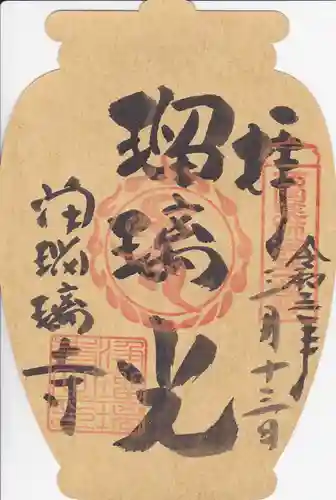 奉拝
令和二年
三月十三日
瑠璃光
浄瑠璃寺